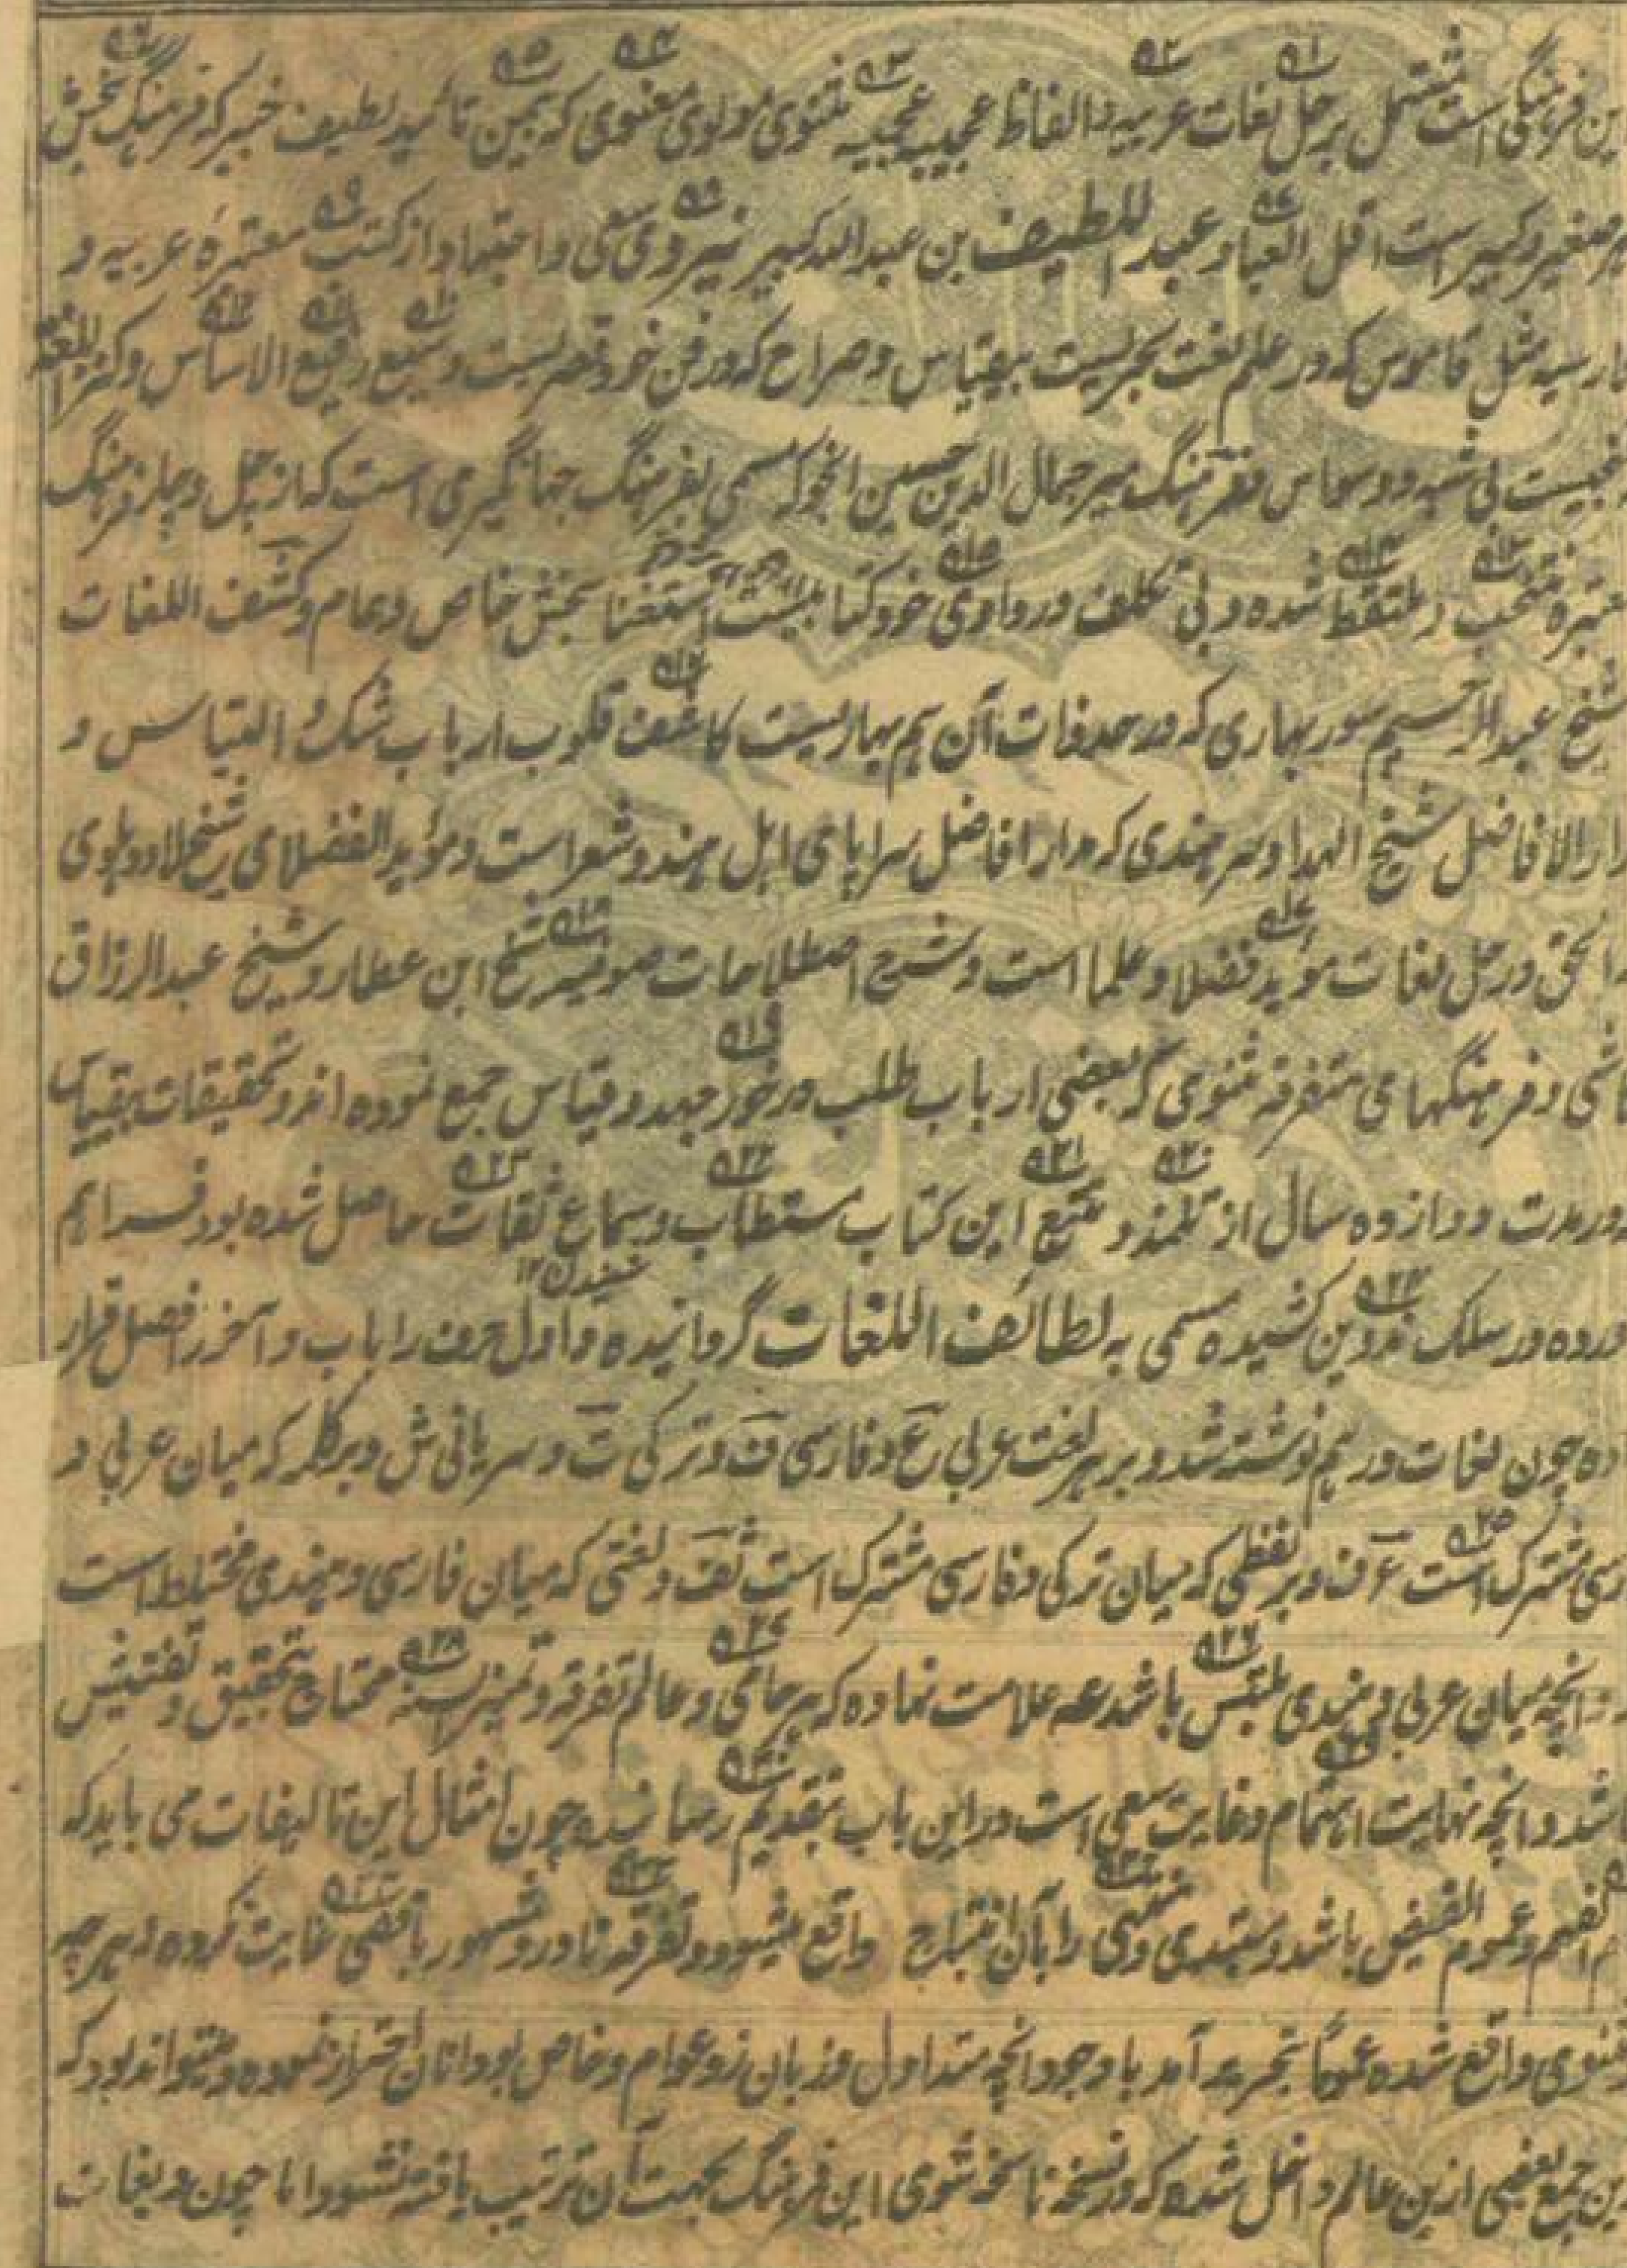 این فرهنگی است مشتمل بر حل لغات عربیه و الفاظ عجیبه عجمیه مثنوی مولوی معنوی که بیمن تائید لطیف خبیر که فرهنگ بخش
هر صغیر و کبیر است اقل العباد عبد اللطیف بن عبد الله کبیر به نیروی سعی و اجتهاد از کتب معتبره عربیه و
فارسیه مثل قاموس که در علم لغت بحریست بیقیاس و صراح که در فن خود قصریست وسیع رفیع الاساس و کنز اللغة
که گنجیست بی شبه و وسواس و فرهنگ میر جمال الدین حسین انجو که مسمی بفرهنگ جهانگیری است که از چهل و چار فرهنگ
معتبره منتخب و ملتقط شده و بی تکلف در وادی خود کتابیست استغنا بخش خاص و عام و کشف اللغات
شیخ عبد الرحیم سور بهاری که در حد ذات آن هم بهاریست کاشف قلوب ارباب شک و التباس و
مدار الافاضل شیخ الهداد سرهندی که مدار افاضل سراپای اهل هند و شعر است و مؤید الفضلای شیخ لاد دهلوی
که الحق در حل لغات مؤید فضلا و علما است و شرح اصطلاحات صوفیه شیخ ابن عطار و شیخ عبد الرزاق
کاشی و فرهنگهای متفرقه مثنوی که بعضی ارباب طلب در خور جهد و قیاس جمع نموده اند و تحقیقات بقیاس
که در مدت دوازده سال از تلمذ و تتبع این کتاب مستطاب و سماع ثقات حاصل شده بود فراهم
شنیدن ۱۲
آورده در سلک تدوین کشیده مسمی به لطائف اللغات گردانیده و اول حرف را باب و آخر را فصل قرار
داده چون لغات در هم نوشته شد و بر هر لغت عربی ع و فارسی ف و ترکی ت و سریانی ش و بر کلمه که میان عربی و
فارسی مشترک است ع ف و بر لفظی که میان ترکی و فارسی مشترک است تف و لغتی که میان فارسی و هندی مختلط است
و انچه میان عربی و هندی ملتبس باشد عه علامت نهاده که هر جاهی و عالم تفرقه و تمییز السنه محتاج تحقیق و تفتیش
باشد و انچه نهایت اهتمام و غایت سعی است در این باب بتقدیم رسانیده چون امثال این تالیفات می باید که
الفهم و عموم الفیض باشد و مبتدی و منتهی را بآن احتیاج واقع میشود و تفرقه نادر و مشهور باقصی غایت کرده هر چه
مثنوی واقع شده عموماً بتحریر آمد با وجود انچه متداول و زبان زد عوام و خاص بود از ان احتراز نموده و میتواند بود که
این جمع بعضی ازین عالم داخل شده که در نسخه ناسخه مثنوی این فرهنگ بجهت آن ترتیب یافته نشود اما چون در لغات